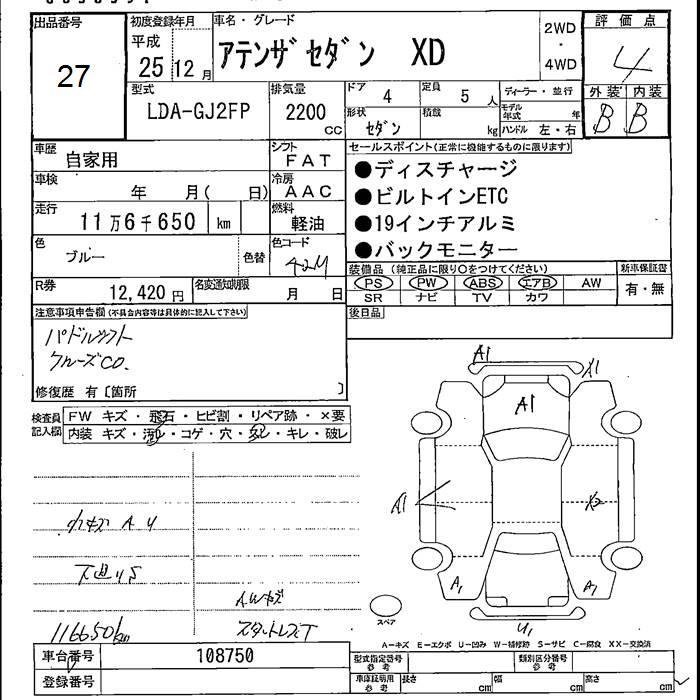 出品番号
27
初度登録年月
平成
25 12月
車名・グレード
アテンザセダン XD
2WD
・
4WD
評価点
4
外装 内装
B B
型式
LDA-GJ2FP
排気量
2200
CC
ドア
4
定員
5 人
形状
セダン
積載
kg
ディーラー・並行
モデル年式
年
ハンドル 左・右
車歴
自家用
シフト
FAT
車検
年 月( 日)
冷房
AAC
走行
11万6千650 km
燃料
軽油
色
ブルー
色替
色コード
42M
R券
12,420円
名変通知期限
月 日
セールスポイント(正常に機能するものに限ります)
●ディスチャージ
●ビルトインETC
●19インチアルミ
●バックモニター
装備品 (純正品に限り○をつけてください)
PS PW ABS エアB AW
SR ナビ TV カワ
新車保証書
有・無
後日品
注意事項申告欄(不具合内容等は具体的に記入して下さい)
パドルシフト
クルーズCO.
修復歴 有〔箇所 〕
検査員記入欄
FW キズ・飛石・ヒビ割・リペア跡・×要
内装 キズ・汚レ・コゲ・穴・スレ・キレ・破レ
小キズ A U
AWキズ
116650km
スタットレスT
A1
A1
A1
A1
A1
U1
スペア
A-キズ E-エクボ U-凹み W-補修跡 S-サビ C-腐食 XX-交換済
車台番号
108750
登録番号
型式指定番号
参考
類別区分番号
参考
車庫証明用
参考
長さ cm
幅 cm
高さ cm